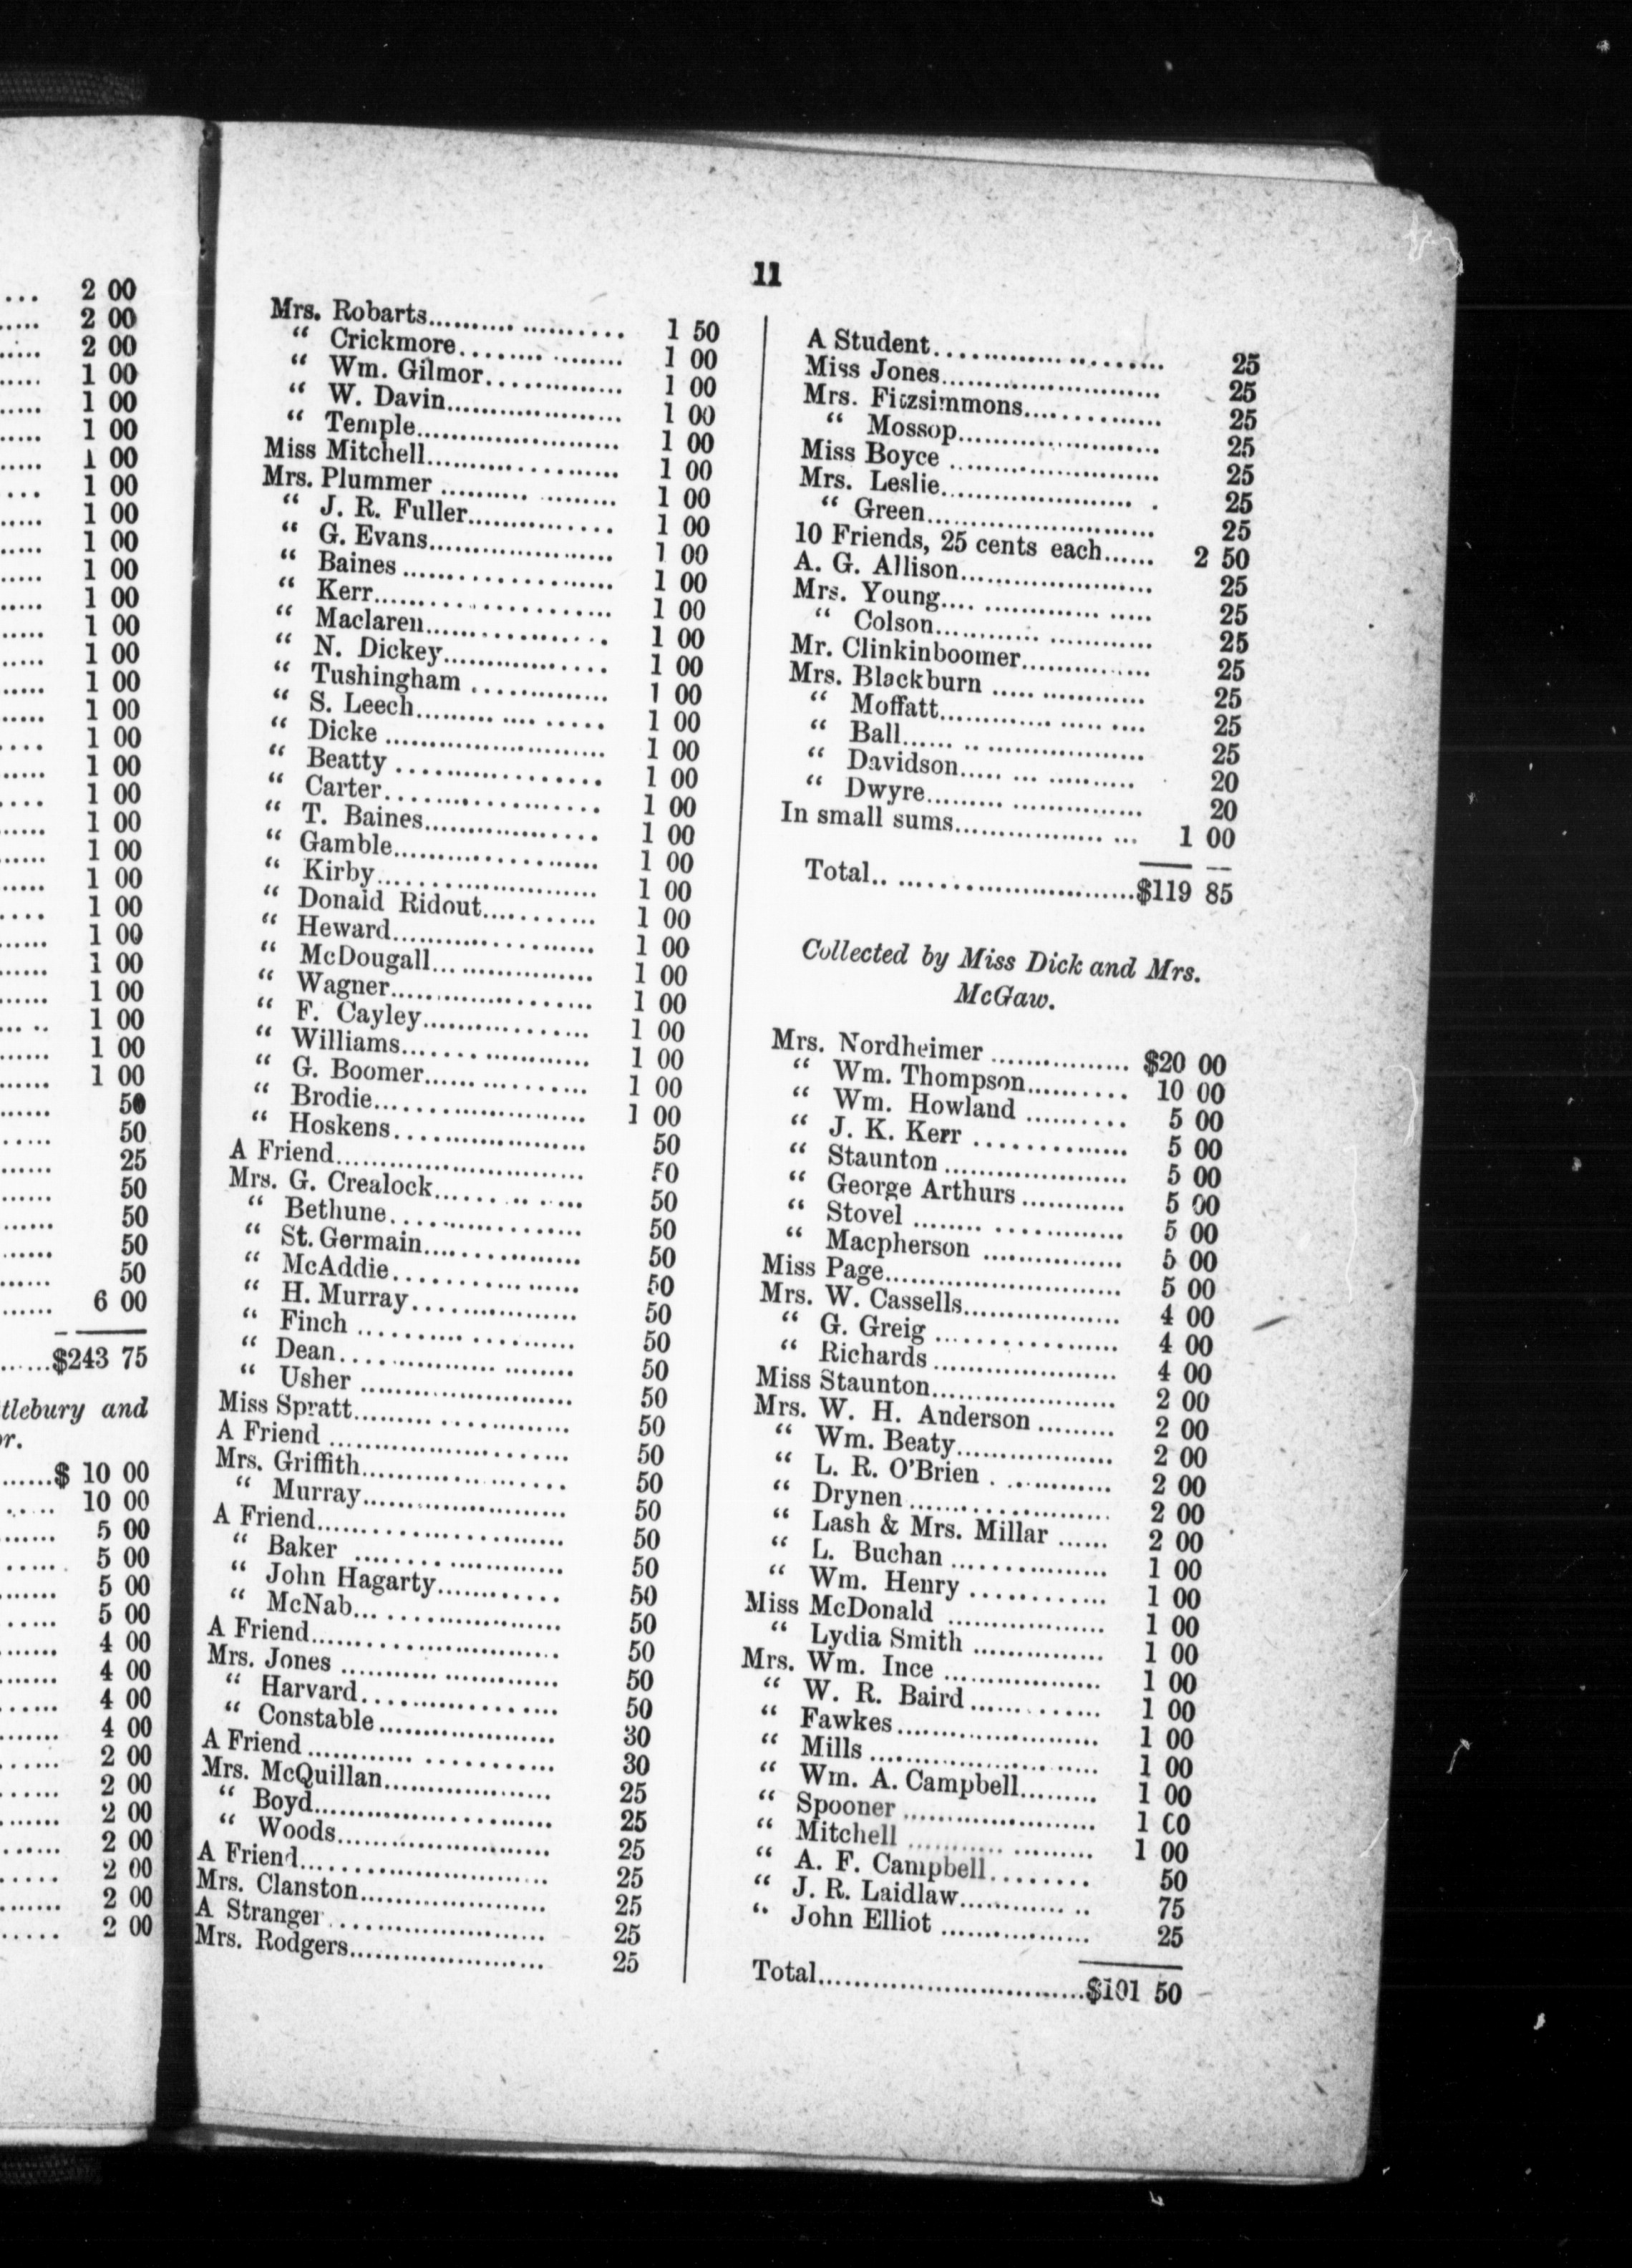 2 00
2 00
2 00
1 00
1 00
1 00
1 00
1 00
1 00
1 00
1 00
1 00
1 00
1 00
1 00
1 00
1 00
1 00
1 00
1 00
1 00
1 00
1 00
1 00
1 00
1 00
1 00
1 00
1 00
50
50
25
50
50
50
50
6 00
$243 75
tlebury and
or.
$ 10 00
10 00
5 00
5 00
5 00
5 00
4 00
4 00
4 00
4 00
2 00
2 00
2 00
2 00
2 00
2 00
2 00
11
Mrs. Robarts.................... 1 50
“ Crickmore.................. 1 00
“ Wm. Gilmor............... 1 00
“ W. Davin.................... 1 00
“ Temple....................... 1 00
Miss Mitchell..................... 1 00
Mrs. Plummer .................... 1 00
“ J. R. Fuller................ 1 00
“ G. Evans..................... 1 00
“ Baines ........................ 1 00
“ Kerr........................... 1 00
“ Maclaren..................... 1 00
“ N. Dickey................... 1 00
“ Tushingham ............... 1 00
“ S. Leech...................... 1 00
“ Dicke ......................... 1 00
“ Beatty ........................ 1 00
“ Carter......................... 1 00
“ T. Baines.................... 1 00
“ Gamble....................... 1 00
“ Kirby.......................... 1 00
“ Donald Ridout............. 1 00
“ Heward....................... 1 00
“ McDougall................... 1 00
“ Wagner....................... 1 00
“ F. Cayley................... 1 00
“ Williams..................... 1 00
“ G. Boomer................... 1 00
“ Brodie........................ 1 00
“ Hoskens...................... 50
A Friend............................ 50
Mrs. G. Crealock................. 50
“ Bethune...................... 50
“ St. Germain.................. 50
“ McAddie..................... 50
“ H. Murray................... 50
“ Finch ......................... 50
“ Dean........................... 50
“ Usher ......................... 50
Miss Spratt........................ 50
A Friend ........................... 50
Mrs. Griffith....................... 50
“ Murray....................... 50
A Friend............................ 50
“ Baker ........................ 50
“ John Hagarty.............. 50
“ McNab........................ 50
A Friend............................ 50
Mrs. Jones ......................... 50
“ Harvard...................... 50
“ Constable.................... 30
A Friend ........................... 30
Mrs. McQuillan................... 25
“ Boyd........................... 25
“ Woods......................... 25
A Friend............................ 25
Mrs. Clanston..................... 25
A Stranger......................... 25
Mrs. Rodgers...................... 25
A Student........................... 25
Miss Jones.......................... 25
Mrs. Fitzsimmons................ 25
“ Mossop........................ 25
Miss Boyce ........................ 25
Mrs. Leslie......................... 25
“ Green.......................... 25
10 Friends, 25 cents each...... 2 50
A. G. Allison...................... 25
Mrs. Young........................ 25
“ Colson........................ 25
Mr. Clinkinboomer............... 25
Mrs. Blackburn ................... 25
“ Moffatt........................ 25
“ Ball............................ 25
“ Davidson..................... 20
“ Dwyre......................... 20
In small sums..................... 1 00
Total..............................$119 85
Collected by Miss Dick and Mrs.
McGaw.
Mrs. Nordheimer ................ $20 00
“ Wm. Thompson........... 10 00
“ Wm. Howland ............ 5 00
“ J. K. Kerr .................. 5 00
“ Staunton ..................... 5 00
“ George Arthurs............ 5 00
“ Stovel ......................... 5 00
“ Macpherson ................ 5 00
Miss Page........................... 5 00
Mrs. W. Cassells.................. 4 00
“ G. Greig ..................... 4 00
“ Richards ..................... 4 00
Miss Staunton..................... 2 00
Mrs. W. H. Anderson ......... 2 00
“ Wm. Beaty.................. 2 00
“ L. R. O’Brien .............. 2 00
“ Drynen ....................... 2 00
“ Lash & Mrs. Millar ...... 2 00
“ L. Buchan .................. 1 00
“ Wm. Henry ................ 1 00
Miss McDonald ................... 1 00
“ Lydia Smith ............... 1 00
Mrs. Wm. Ince ................... 1 00
“ W. R. Baird................ 1 00
“ Fawkes....................... 1 00
“ Mills .......................... 1 00
“ Wm. A. Campbell......... 1 00
“ Spooner ...................... 1 00
“ Mitchell ...................... 1 00
“ A. F. Campbell............ 50
“ J. R. Laidlaw............... 75
“ John Elliot .................. 25
Total..............................$101 50